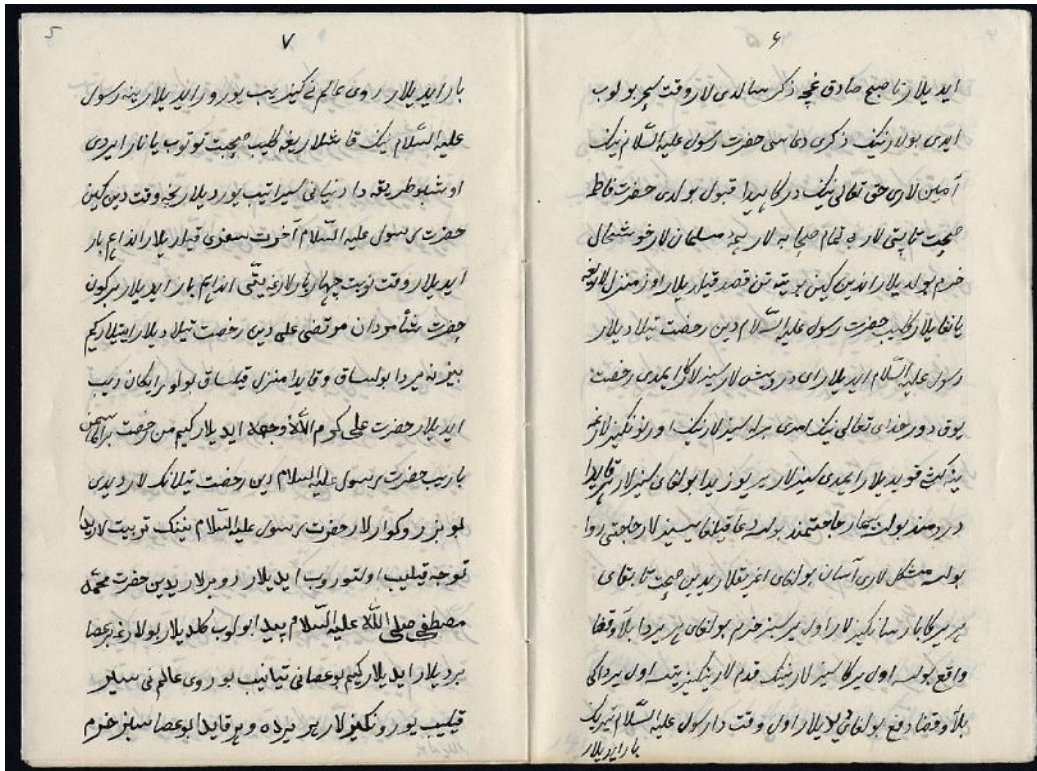 ۶
ایدیلار تا صبح صادق غچه ذکر سالدی لار وقت سحر بولوب
ایدی بولارنینک ذکری دعاسی حضرت رسول علیه السّلام نینک
آمین لاری حق تعالی نینک درکاهیدا قبول بولدی حضرت فاطمه
صحت تاپتی لار تمام صحابه لار مسلمان لار خوشحال
خرم بولدیلار اندین کین بو یتّه تن قصد قیلدیلار اوز منزل لاریغه
یانغایلار کلیب حضرت رسول علیه السّلام دین رخصت تیلادیلار
رسول علیه السّلام ایدیلار ای درویش لار سیزلارکا ایمدی رخصت
یوق دور خدای تعالی نینک امری برله سیزلارنینک اورنونکیزلارغه
ینه قویدیلار ایمدی سیزلار یر یوزیدا بولغای سیزلار هر قایدا
دردمند بولسه بیمار حاجتمند بولسه دعا قیلغای سیزلار حاجتی روا
بولسه مشکل لاری آسان بولغای اغریقلاریدین صحت تابقای
هر یرکا بارسانکیزلار اول یر سبز خرم بولغای هر یردا بلا و قضا
واقع بولسه اول یرکا سیزلارنینک قدم لارینکیز یتسه اول یرداکی
بلا و قضا دفع بولغای دیدیلار اول وقت دا رسول علیه السّلام تیریک
بار ایدیلار
۷
بار ایدیلار روی عالم نی کیزیب یورور ایدیلار ینه رسول
علیه السّلام نینک قاشلاریغه کلیب صحبت توتوب یانار ایردی
اوشبو طریقه دا دنیانی سیر ایتیب یوردیلار نچه وقت دین کین
حضرت رسول علیه السّلام آخرت سفری قیلدیلار انداغ بار
ایدیلار وقت نوبت چهاریارلارغه یتّی انداغ بار ایدیلار بر کون
حضرت شاه مردان مرتضی علی دین رخصت تیلادیلار ایتدیلار کیم
بیز نه یردا بولساق و قایدا منزل قیلساق بولور ایکان دیب
ایدیلار حضرت علی کرم اللّه وجهه ایدیلار کیم من رخصت
باریب حضرت رسول علیه السلام دین رخصت تیلانک لار دیدی
بو بزروکوارلار حضرت رسول علیه السّلام نینک تربیت لاریدا
توجه قیلیب اولتوروب ایدیلار روبرلاریدین حضرت محمّد
مصطفی صلی اللّه علیه السّلام پیدا بولوب کلدیلار بولارغه بر عصا
بردیلار ایدیلار کیم بو عصانی تیانیب بو روی عالم نی سیر
قیلیب یورونکیزلار هر یرده و هر قایدا بو عصا سبز خرم